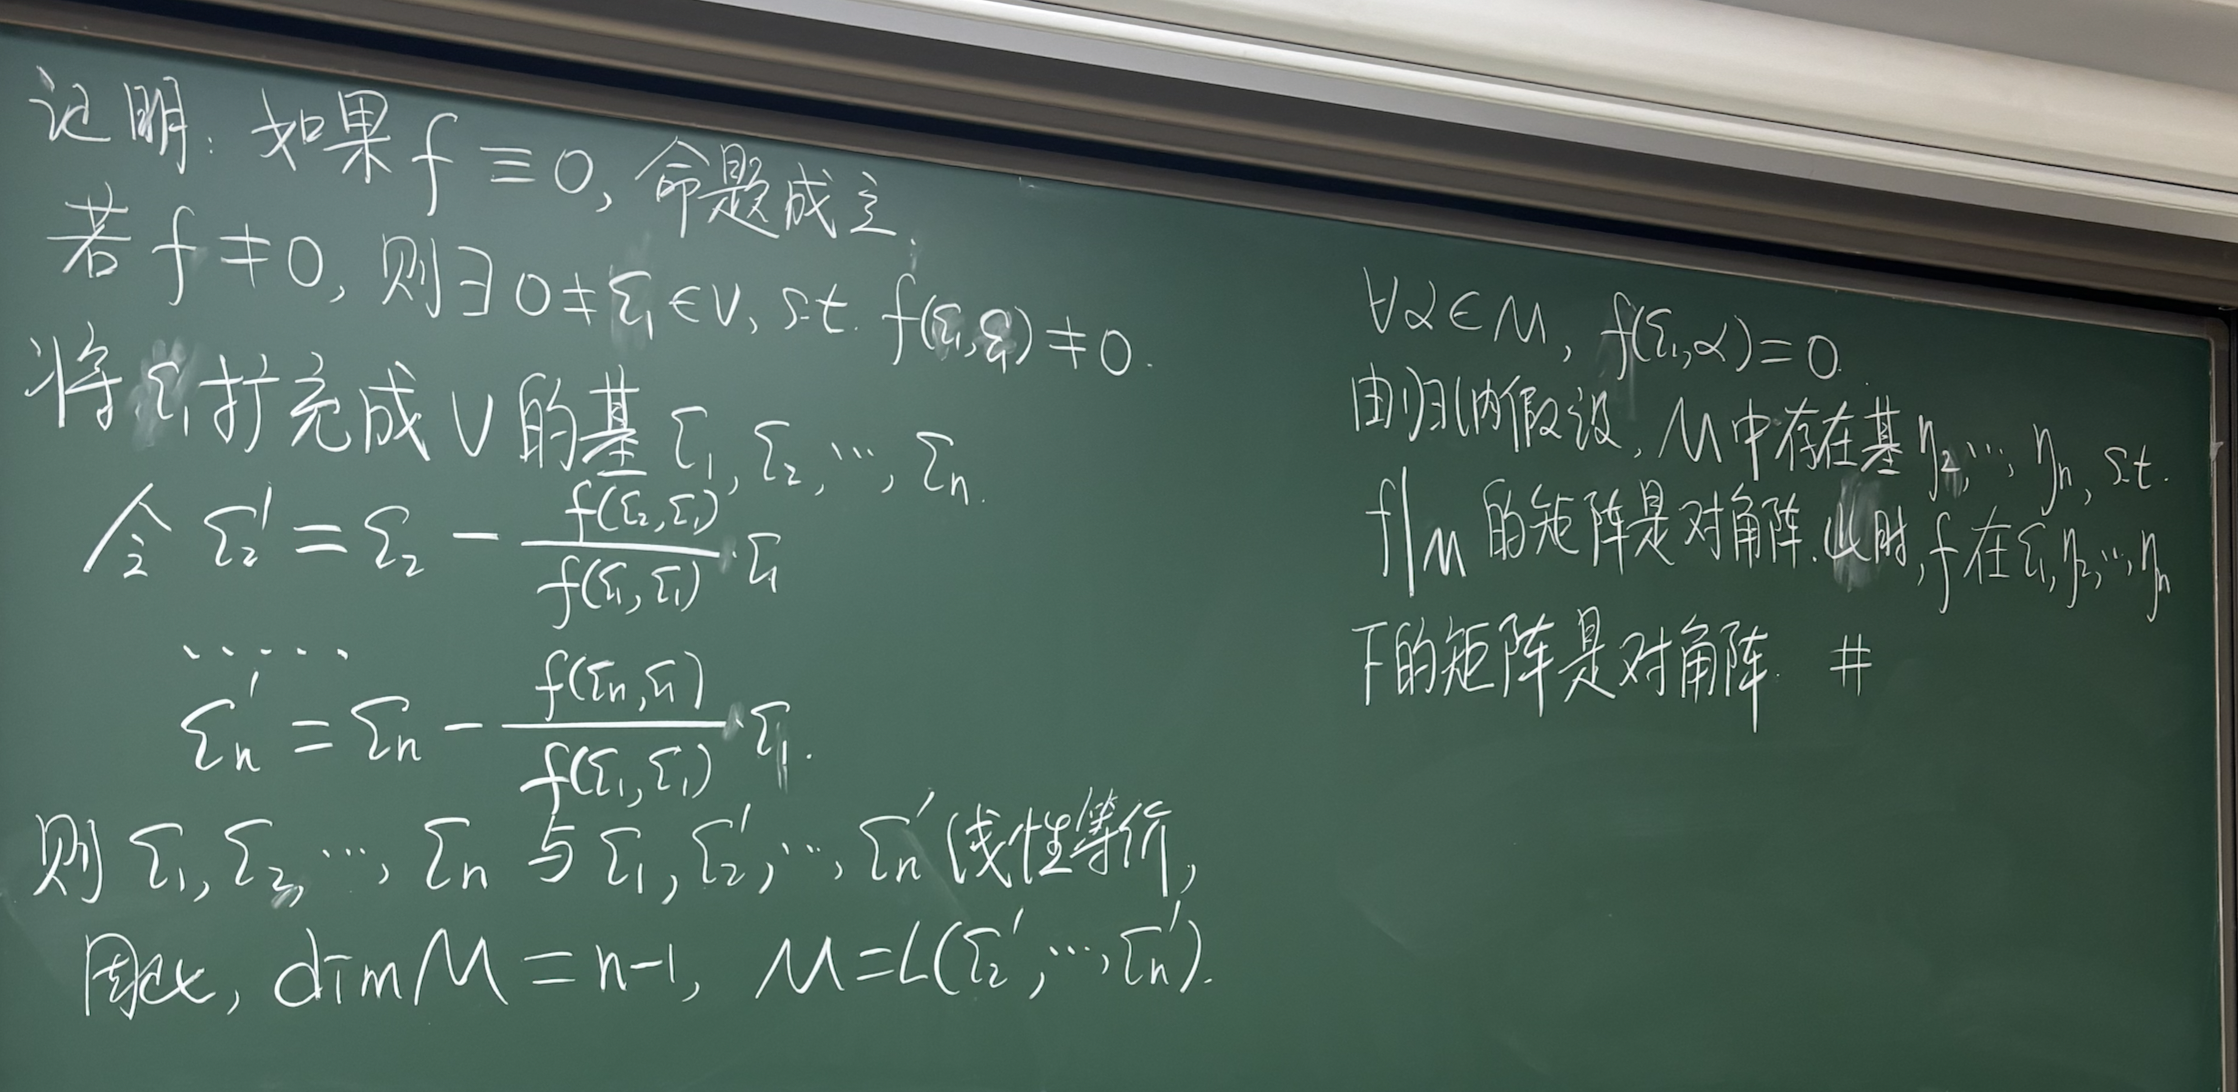 证明: 如果 f ≡ 0, 命题成立.
若 f ≠ 0, 则 ∃ 0 ≠ ε₁ ∈ V, s.t. f(ε₁, ε₁) ≠ 0.
将 ε₁ 扩充成 V 的基 ε₁, ε₂, ⋯, εn.
令 ε₂' = ε₂ - f(ε₂, ε₁)/f(ε₁, ε₁) · ε₁
⋯⋯
εn' = εn - f(εn, ε₁)/f(ε₁, ε₁) · ε₁.
则 ε₁, ε₂, ⋯, εn 与 ε₁, ε₂', ⋯, εn' 线性等价,
因此, dim M = n-1, M = L(ε₂', ⋯, εn').
∀α ∈ M, f(ε₁, α) = 0.
由归纳假设, M 中存在基 η₂, ⋯, ηn, s.t.
f|M 的矩阵是对角阵. 此时, f 在 ε₁, η₂, ⋯, ηn
下的矩阵是对角阵. #